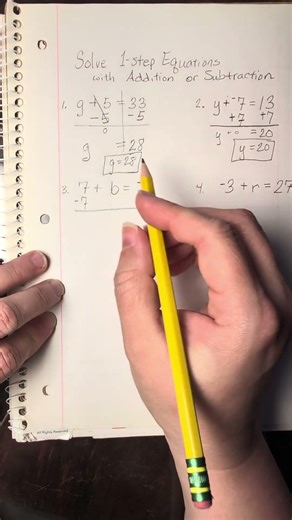 Solve 1-step Equations
with Addition or Subtraction
1. g + 5 = 33
-5 -5
0
g = 28
g = 28
2. y + -7 = 13
+7 +7
y = 20
y = 20
3. 7 + b =
-7
4. -3 + r = 27